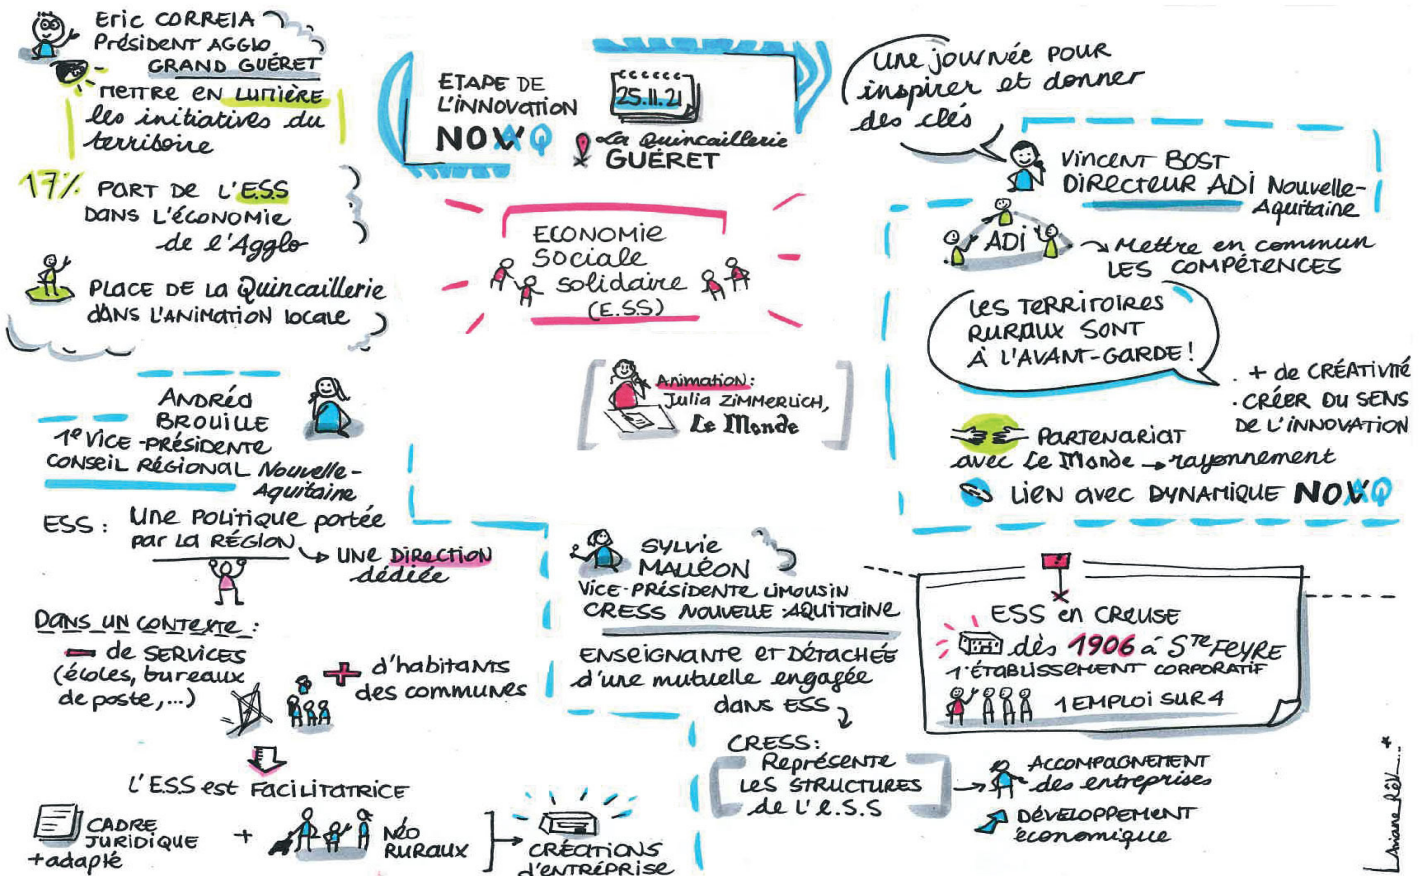 Eric CORREIA
Président AGGLO
GRAND GUÉRET
METTRE EN LUMIÈRE
les initiatives du
territoire
17% PART DE L'ESS
DANS L'économie
de l'Agglo
PLACE DE LA Quincaillerie
dans l'animation locale
ETAPE DE
L'INNOVATION
NOVAQ
25.11.21
La Quincaillerie
GUÉRET
ECONOMIE
Sociale
solidaire
(E.S.S)
Animation:
Julia ZIMMERLICH,
Le Monde
Une journée POUR
inspirer et donner
des clés
VINCENT BOST
DIRECTEUR ADI Nouvelle-
Aquitaine
ADI
Mettre en commun
LES COMPÉTENCES
LES TERRITOIRES
RURAUX SONT
À L'AVANT-GARDE!
. + de CRÉATIVITÉ
. CRÉER DU SENS
DE L'INNOVATION
PARTENARIAT
avec Le Monde → rayonnement
LIEN avec DYNAMIQUE NOVAQ
ANDRÉA
BROUILLE
1e VICE-PRÉSIDENTE
CONSEIL RÉGIONAL Nouvelle-
Aquitaine
ESS: Une POLITIQUE portée
par LA RÉGION
UNE DIRECTION
dédiée
DANS UN CONTEXTE:
- de SERVICES
(écoles, bureaux
de poste,...)
+ d'habitants
des communes
L'ESS est FACILITATRICE
CADRE
JURIDIQUE
+adapté
+
NÉO
RURAUX
CRÉATIONS
d'ENTREPRISE
SYLVIE
MALLÉON
VICE-PRÉSIDENTE LIMOUSIN
CRESS NOUVELLE-AQUITAINE
ENSEIGNANTE ET DÉTACHÉE
d'une mutuelle engagée
dans ESS
CRESS:
Représente
LES STRUCTURES
de L'E.S.S
ACCOMPAGNEMENT
des entreprises
DÉVELOPPEMENT
économique
ESS en CREUSE
dès 1906 à STE FEYRE
1er ÉTABLISSEMENT CORPORATIF
1 EMPLOI SUR 4